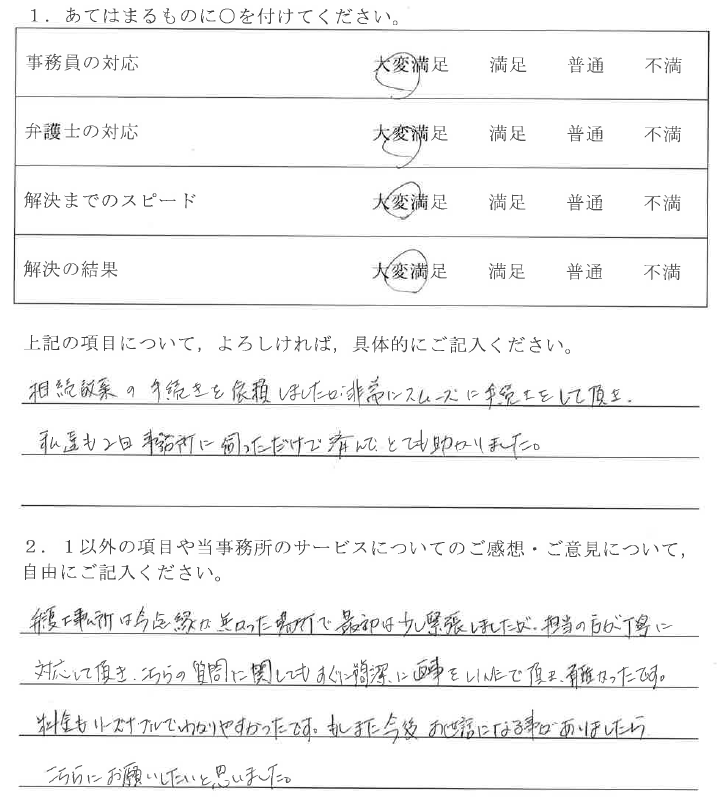 １．あてはまるものに○を付けてください。
事務員の対応 大変満足 満足 普通 不満
弁護士の対応 大変満足 満足 普通 不満
解決までのスピード 大変満足 満足 普通 不満
解決の結果 大変満足 満足 普通 不満
上記の項目について，よろしければ，具体的にご記入ください。
相続放棄の手続きを依頼しましたが非常にスムーズに手続きをして頂き、
私達も2回事務所に伺っただけで済んで、とても助かりました。
２．１以外の項目や当事務所のサービスについてのご感想・ご意見について，
自由にご記入ください。
弁護士事務所は今迄縁が無かった場所で最初は少し緊張しましたが、担当の方が丁寧に
対応して頂き、こちらの質問に関してもすぐに簡潔に返事をLINEで頂き、有難かったです。
料金もリーズナブルでわかりやすかったです。もしまた今後お世話になる事がありましたら
こちらにお願いしたいと思いました。